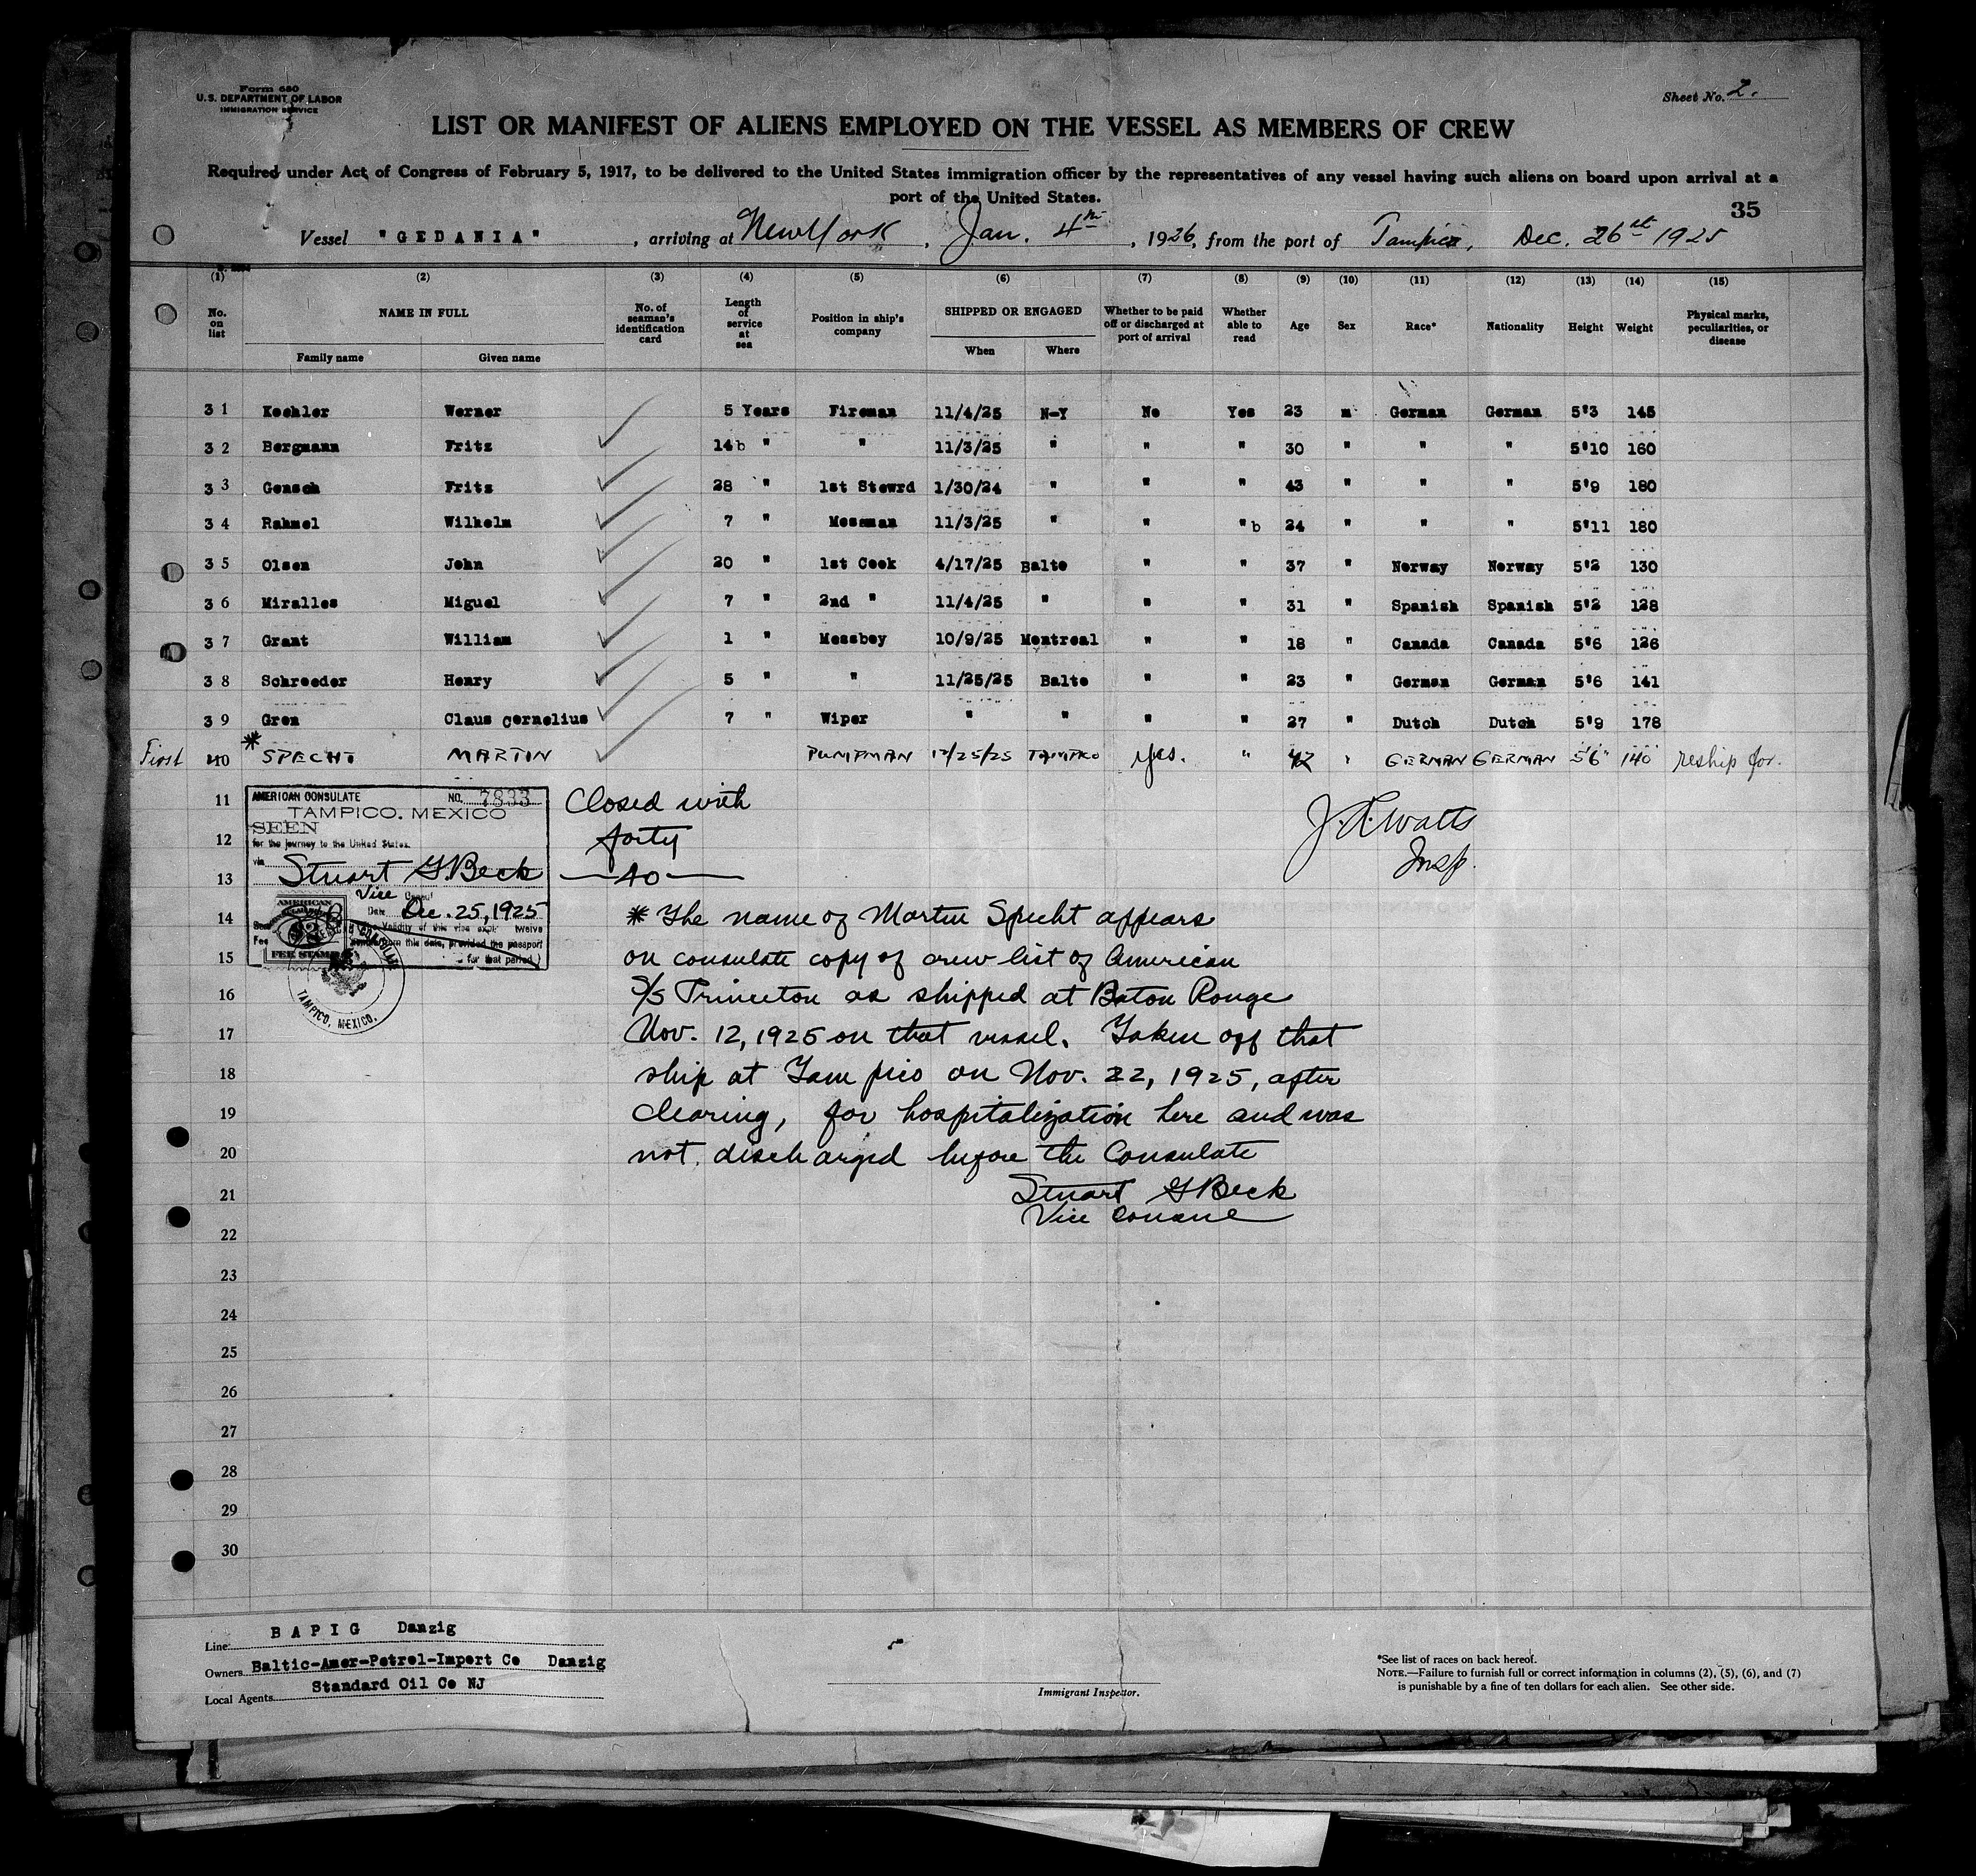 Form 680
U.S. DEPARTMENT OF LABOR
IMMIGRATION SERVICE
Sheet No. 2.
LIST OR MANIFEST OF ALIENS EMPLOYED ON THE VESSEL AS MEMBERS OF CREW
Required under Act of Congress of February 5, 1917, to be delivered to the United States immigration officer by the representatives of any vessel having such aliens on board upon arrival at a
port of the United States.
35
Vessel "GEDANIA", arriving at New York, Jan. 4th, 1926, from the port of Tampico, Dec. 26st 1925
(1) (2) (3) (4) (5) (6) (7) (8) (9) (10) (11) (12) (13) (14) (15)
No. on list NAME IN FULL Family name Given name No. of seaman's identification card Length of service at sea Position in ship's company SHIPPED OR ENGAGED When Where Whether to be paid off or discharged at port of arrival Whether able to read Age Sex Race* Nationality Height Weight Physical marks, peculiarities, or disease
31 Koehler Werner 5 Years Fireman 11/4/25 N-Y No Yes 23 m German German 5'3 145
32 Bergmann Fritz 14b " " 11/3/25 " " " 30 " " " 5'10 160
33 Gensch Fritz 28 " 1st Stewrd 1/30/24 " " " 43 " " " 5'9 180
34 Rahmel Wilhelm 7 " Messman 11/3/25 " " "b 24 " " " 5'11 180
35 Olsen John 20 " 1st Cook 4/17/25 Balto " " 37 " Norway Norway 5'2 130
36 Miralles Miguel 7 " 2nd " 11/4/25 " " " 31 " Spanish Spanish 5'2 128
37 Grant William 1 " Messboy 10/9/25 Montreal " " 18 " Canada Canada 5'6 126
38 Schroeder Henry 5 " " 11/25/25 Balto " " 23 " German German 5'6 141
39 Gren Claus Cornelius 7 " Wiper " " " " 27 " Dutch Dutch 5'9 178
First 40 * SPECHT MARTIN PUMPMAN 12/25/25 TAMPICO Yes. " 42 " GERMAN GERMAN 5'6" 140 reship for.
11
12
13
14
15
16
17
18
19
20
21
22
23
24
25
26
27
28
29
30
AMERICAN CONSULATE NO. 7833
TAMPICO, MEXICO
SEEN
for the journey to the United States.
via
Stuart G. Beck
Vice Consul
Date Dec. 25, 1925
Validity of this visa twelve
from this date, provided the passport
for that period.)
AMERICAN
FEE STAMP
TAMPICO, MEXICO.
Closed with
forty
—40—
J. A. Watts
Insp.
* The name of Martin Specht appears
on consulate copy of crew list of American
S/S Princeton as shipped at Baton Rouge
Nov. 12, 1925 on that vessel. Taken off that
ship at Tampico on Nov. 22, 1925, after
clearing, for hospitalization here and was
not discharged before the Consulate
Stuart G Beck
Vice Consul
Line: BAPIG Danzig
Owners Baltic-Amer-Petrol-Import Co Danzig
Local Agents Standard Oil Co NJ
Immigrant Inspector.
*See list of races on back hereof.
NOTE.—Failure to furnish full or correct information in columns (2), (5), (6), and (7)
is punishable by a fine of ten dollars for each alien. See other side.